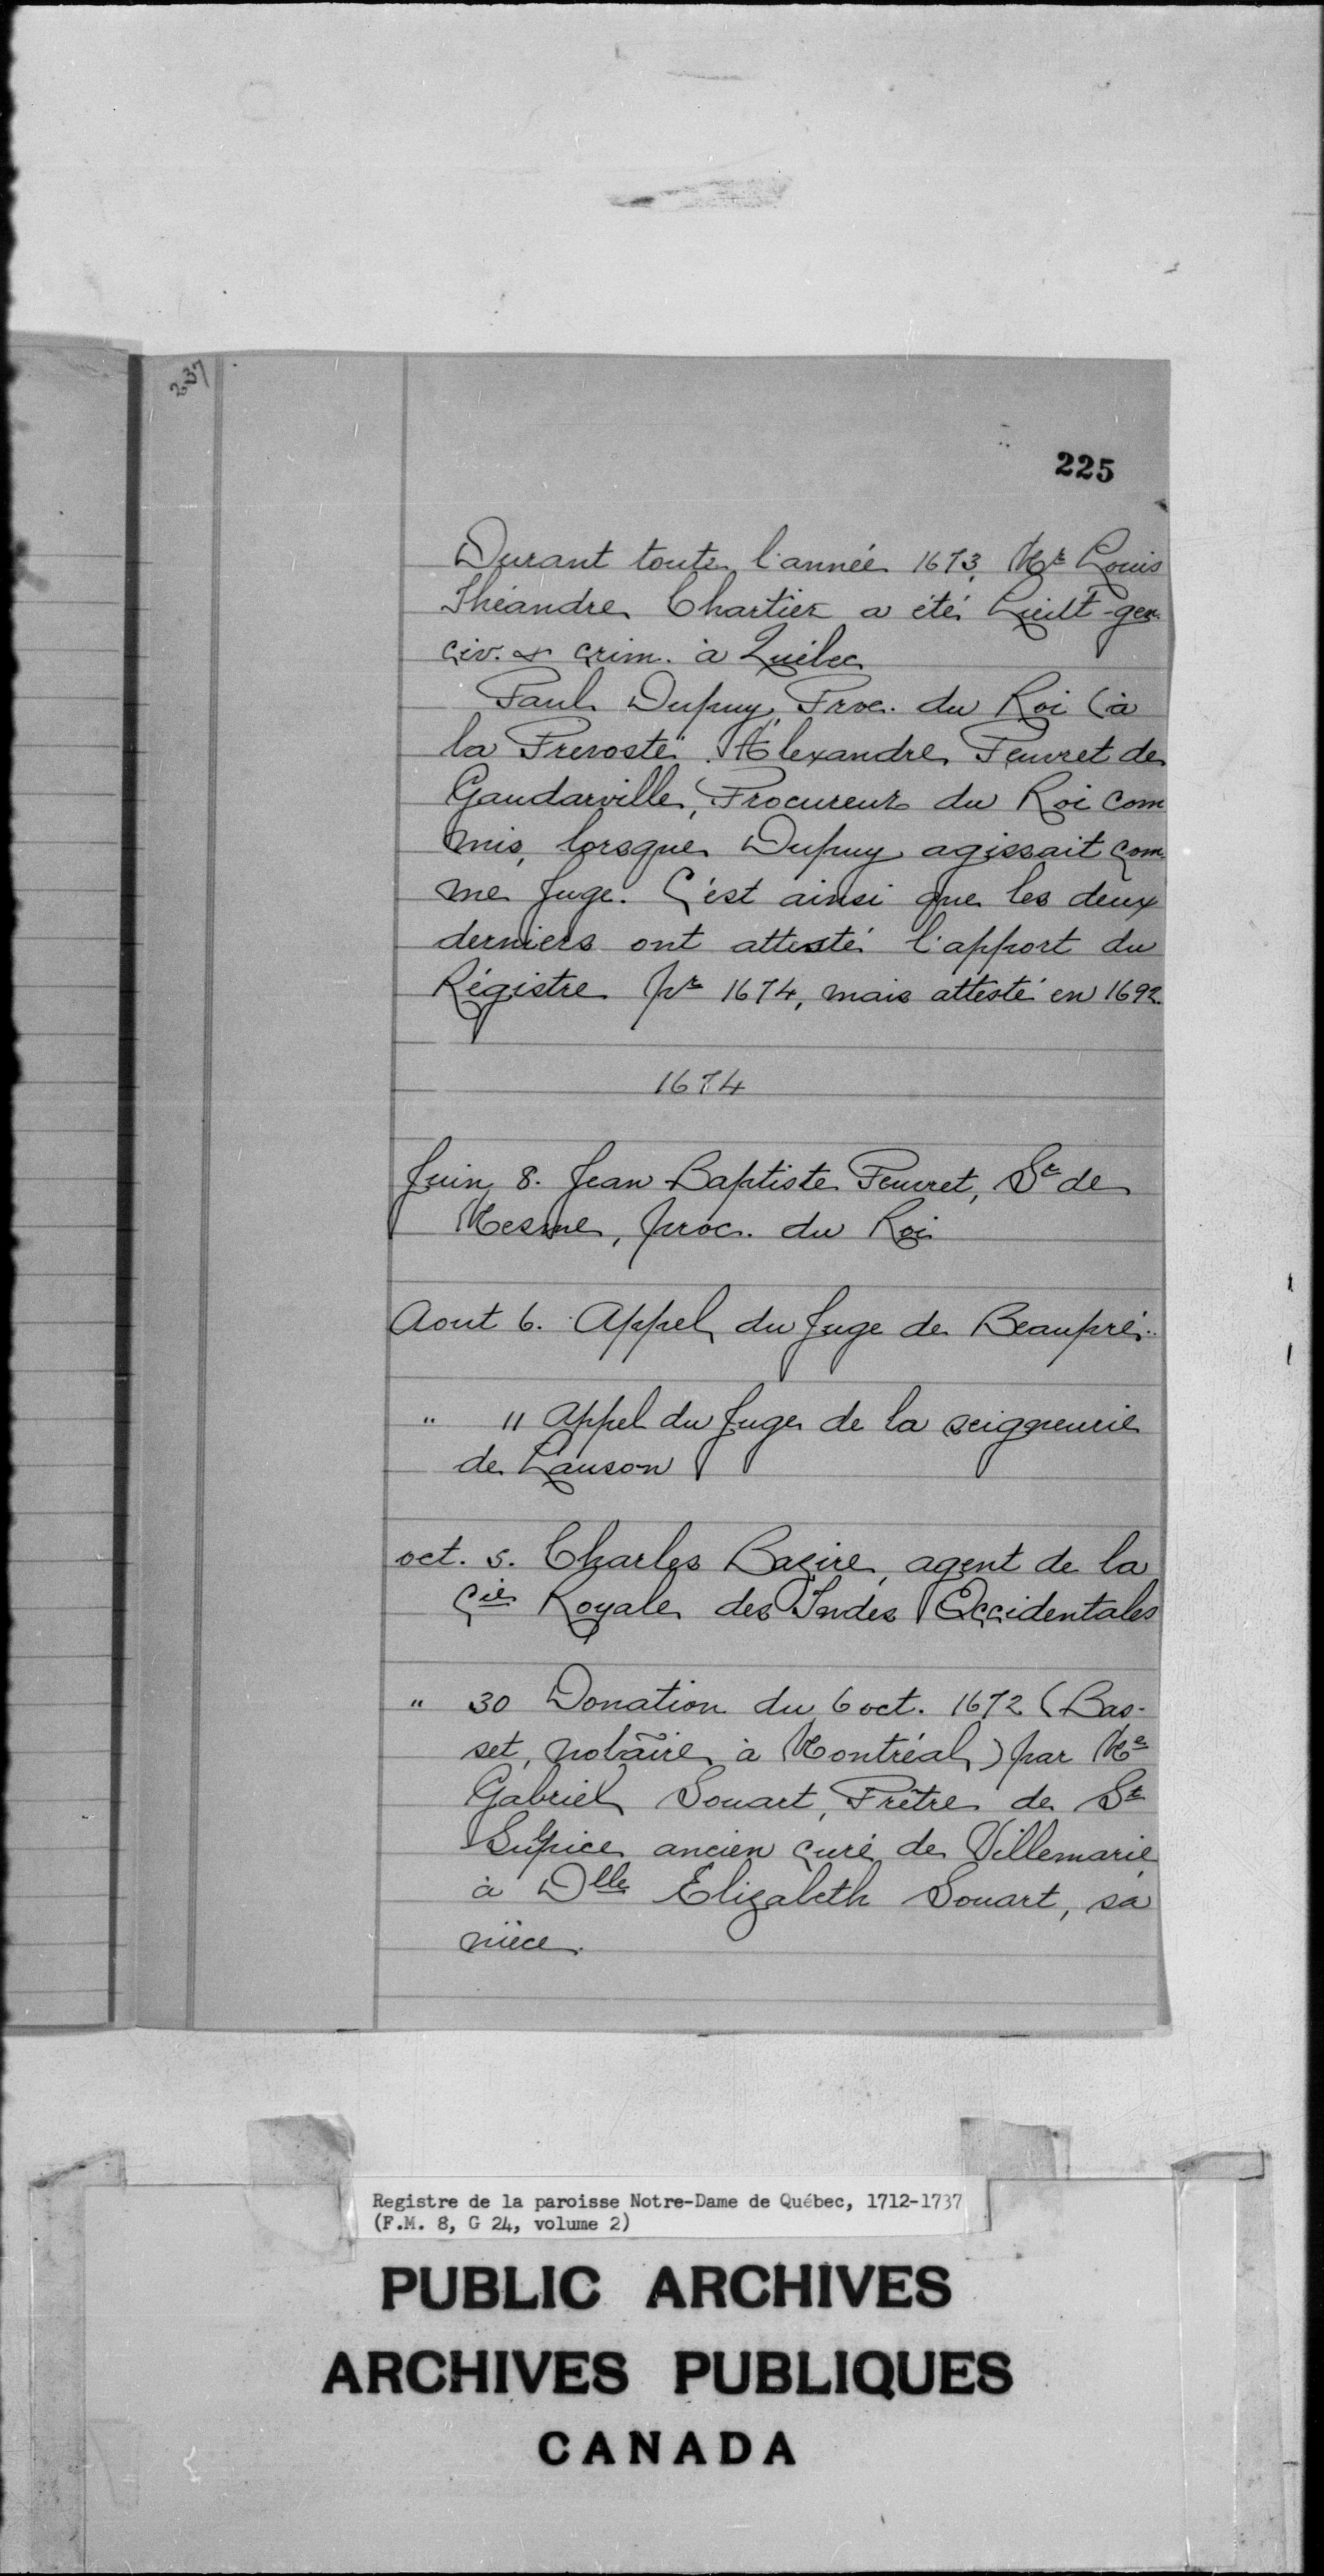 237
225
Durant toute l'année 1673, Mr Louis
Théandre Chartier a été Lieut-gen.
civ. & crim. à Québec
Paul Dupuy, Proc. du Roi (à
la Prevosté. Alexandre Peuvret de
Gaudarville, Procureur du Roi com
mis, lorsque Dupuy agissait com
me Juge. C'est ainsi que les deux
derniers ont attesté l'apport du
Régistre pr 1674, mais attesté en 1692.
1674
Juin 8. Jean-Baptiste Peuvret, Sr de
Mesme, proc. du Roi
Aout 6. Appel du Juge de Beaupré.
" 11 Appel du Juge de la seigneurie
de Lauson
oct. 5. Charles Bazire, agent de la
Cie Royale des Indes Occidentales
" 30 Donation du 6 oct. 1672 (Bas-
set, notaire à Montréal) par Me
Gabriel Souart, Prêtre de St
Sulpice ancien curé de Villemarie
à Dlle Elizabeth Souart, sa
nièce.
Registre de la paroisse Notre-Dame de Québec, 1712-1737
(F.M. 8, G 24, volume 2)
PUBLIC ARCHIVES
ARCHIVES PUBLIQUES
CANADA